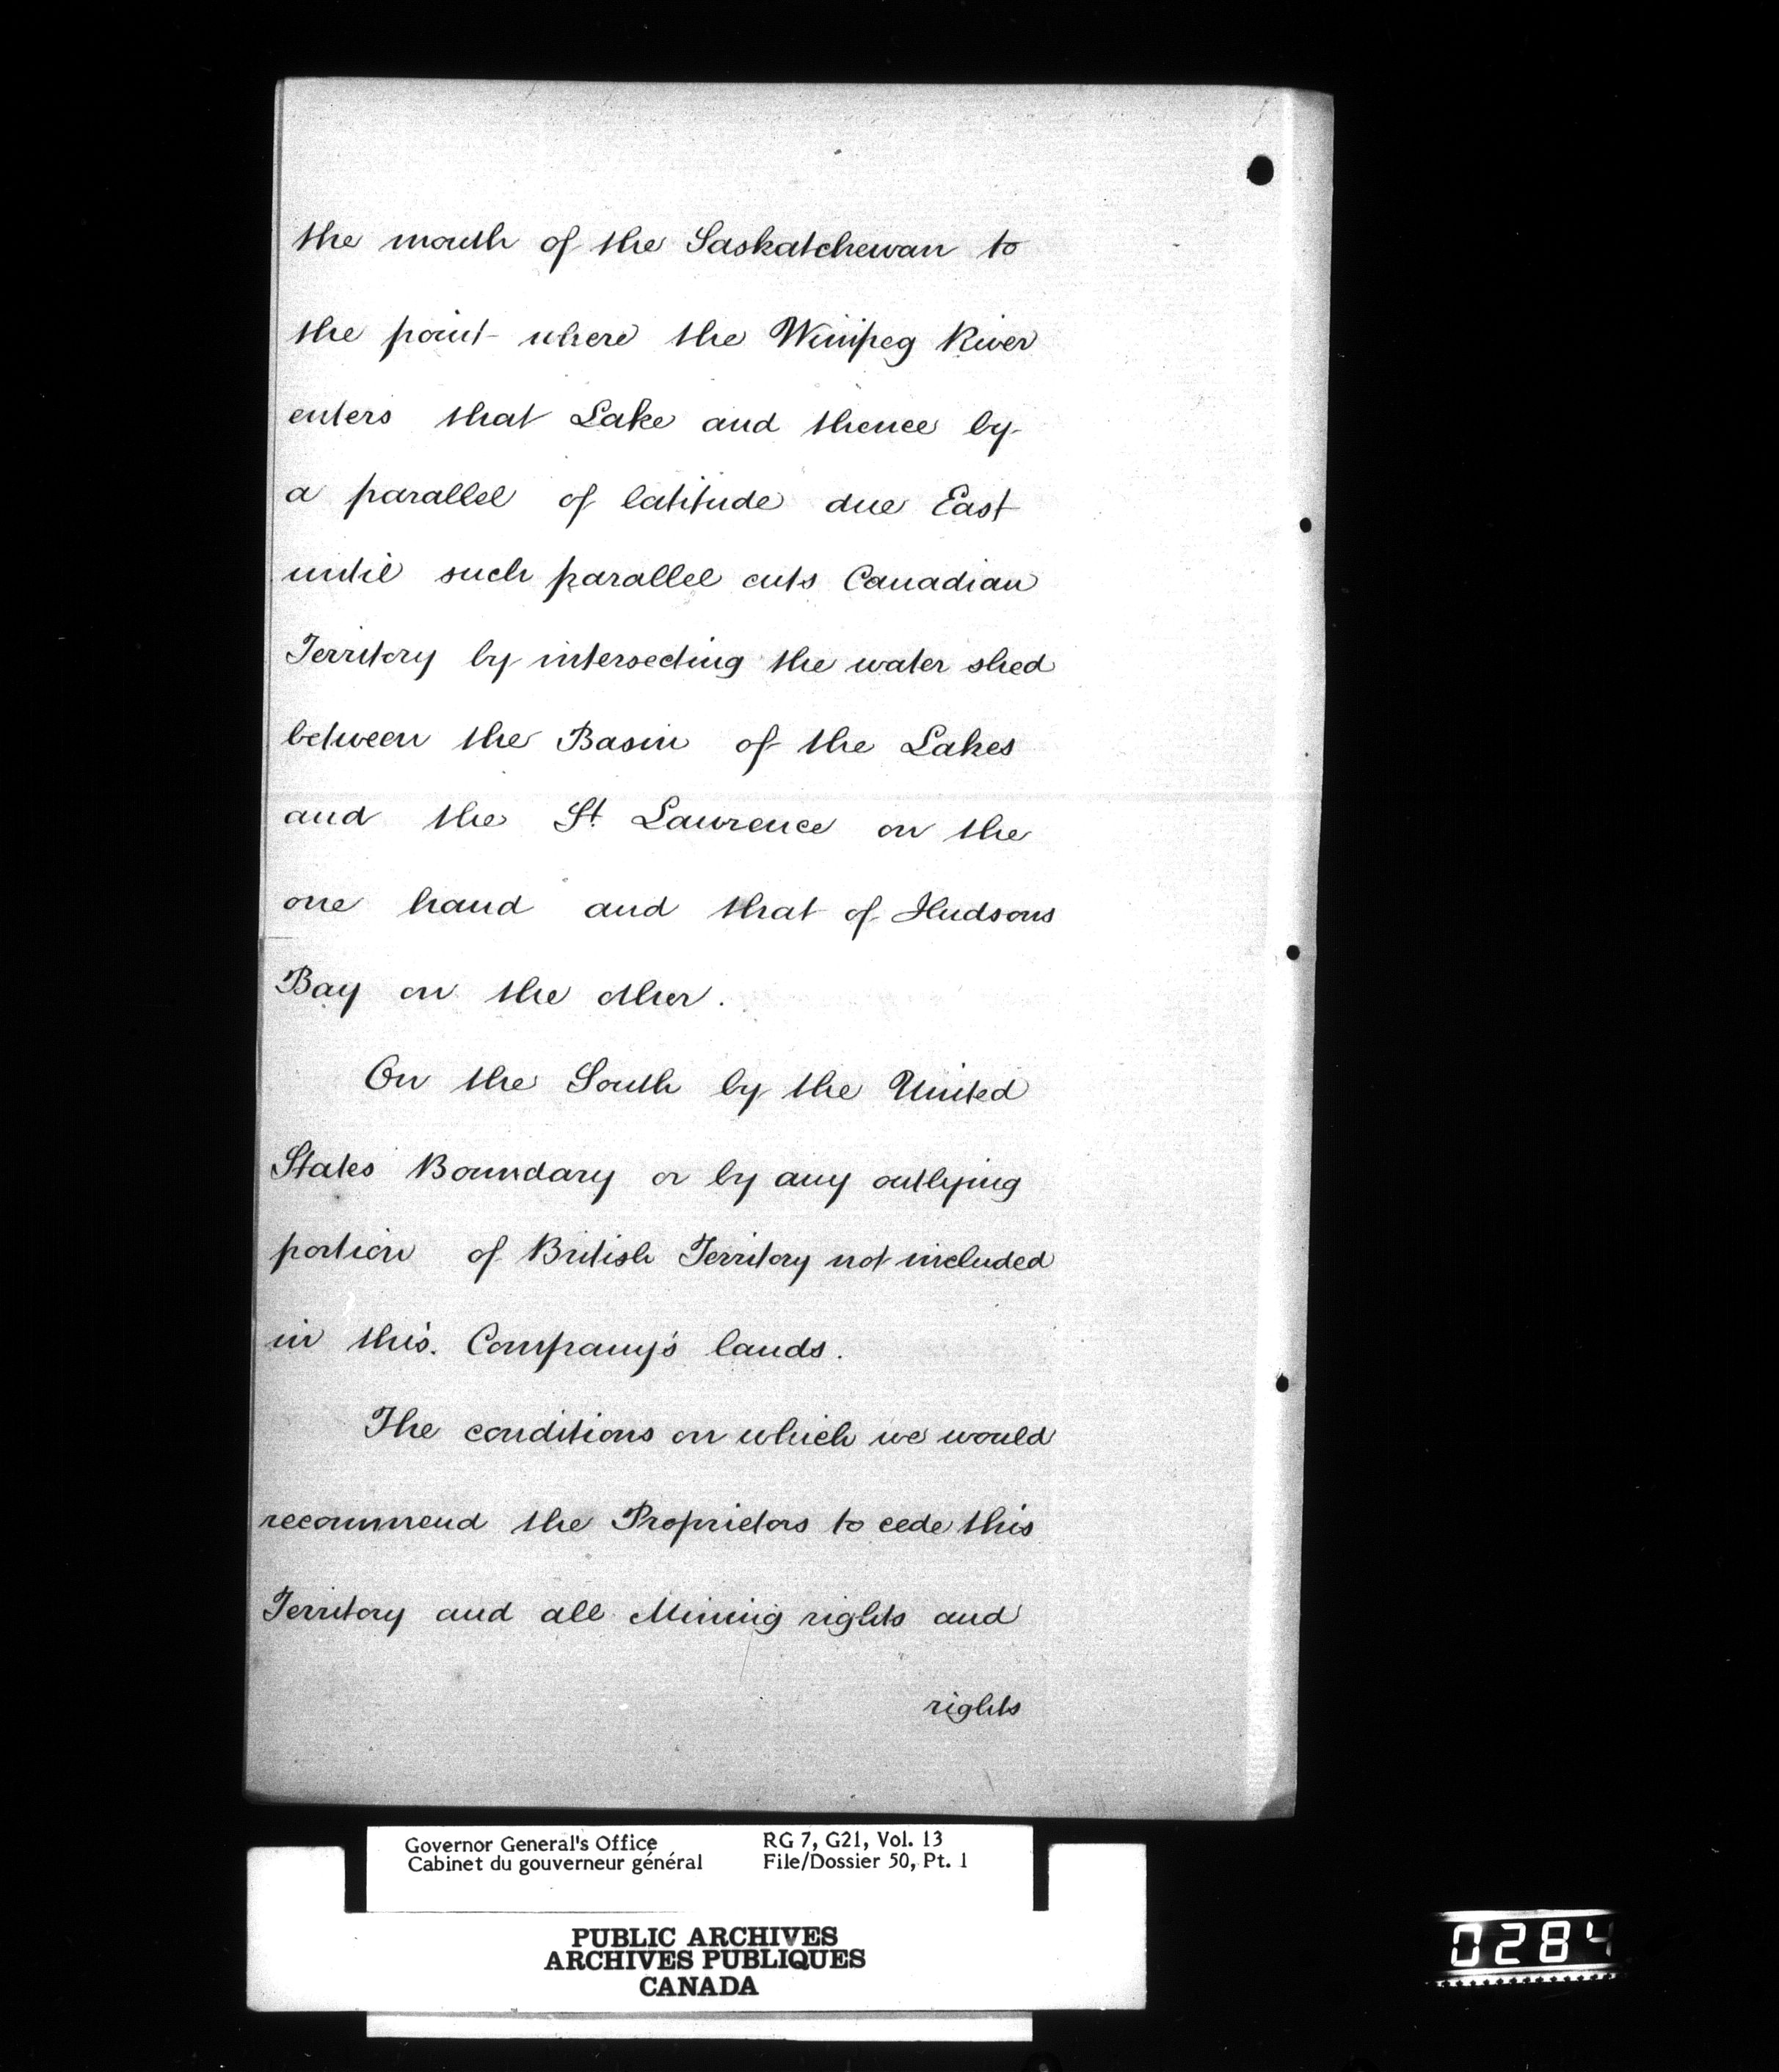 the mouth of the Saskatchewan to
the point where the Winipeg River
enters that Lake and thence by
a parallel of latitude due East
until such parallel cuts Canadian
Territory by intersecting the water shed
between the Basin of the Lakes
and the St. Lawrence on the
one hand and that of Hudsons
Bay on the other.
On the South by the United
States Boundary or by any outlying
portion of British Territory not included
in this Company's lands.
The conditions on which we would
recommend the Proprietors to cede this
Territory and all Mining rights and
rights
Governor General's Office RG 7, G21, Vol. 13
Cabinet du gouverneur général File/Dossier 50, Pt. 1
PUBLIC ARCHIVES
ARCHIVES PUBLIQUES
CANADA
0284